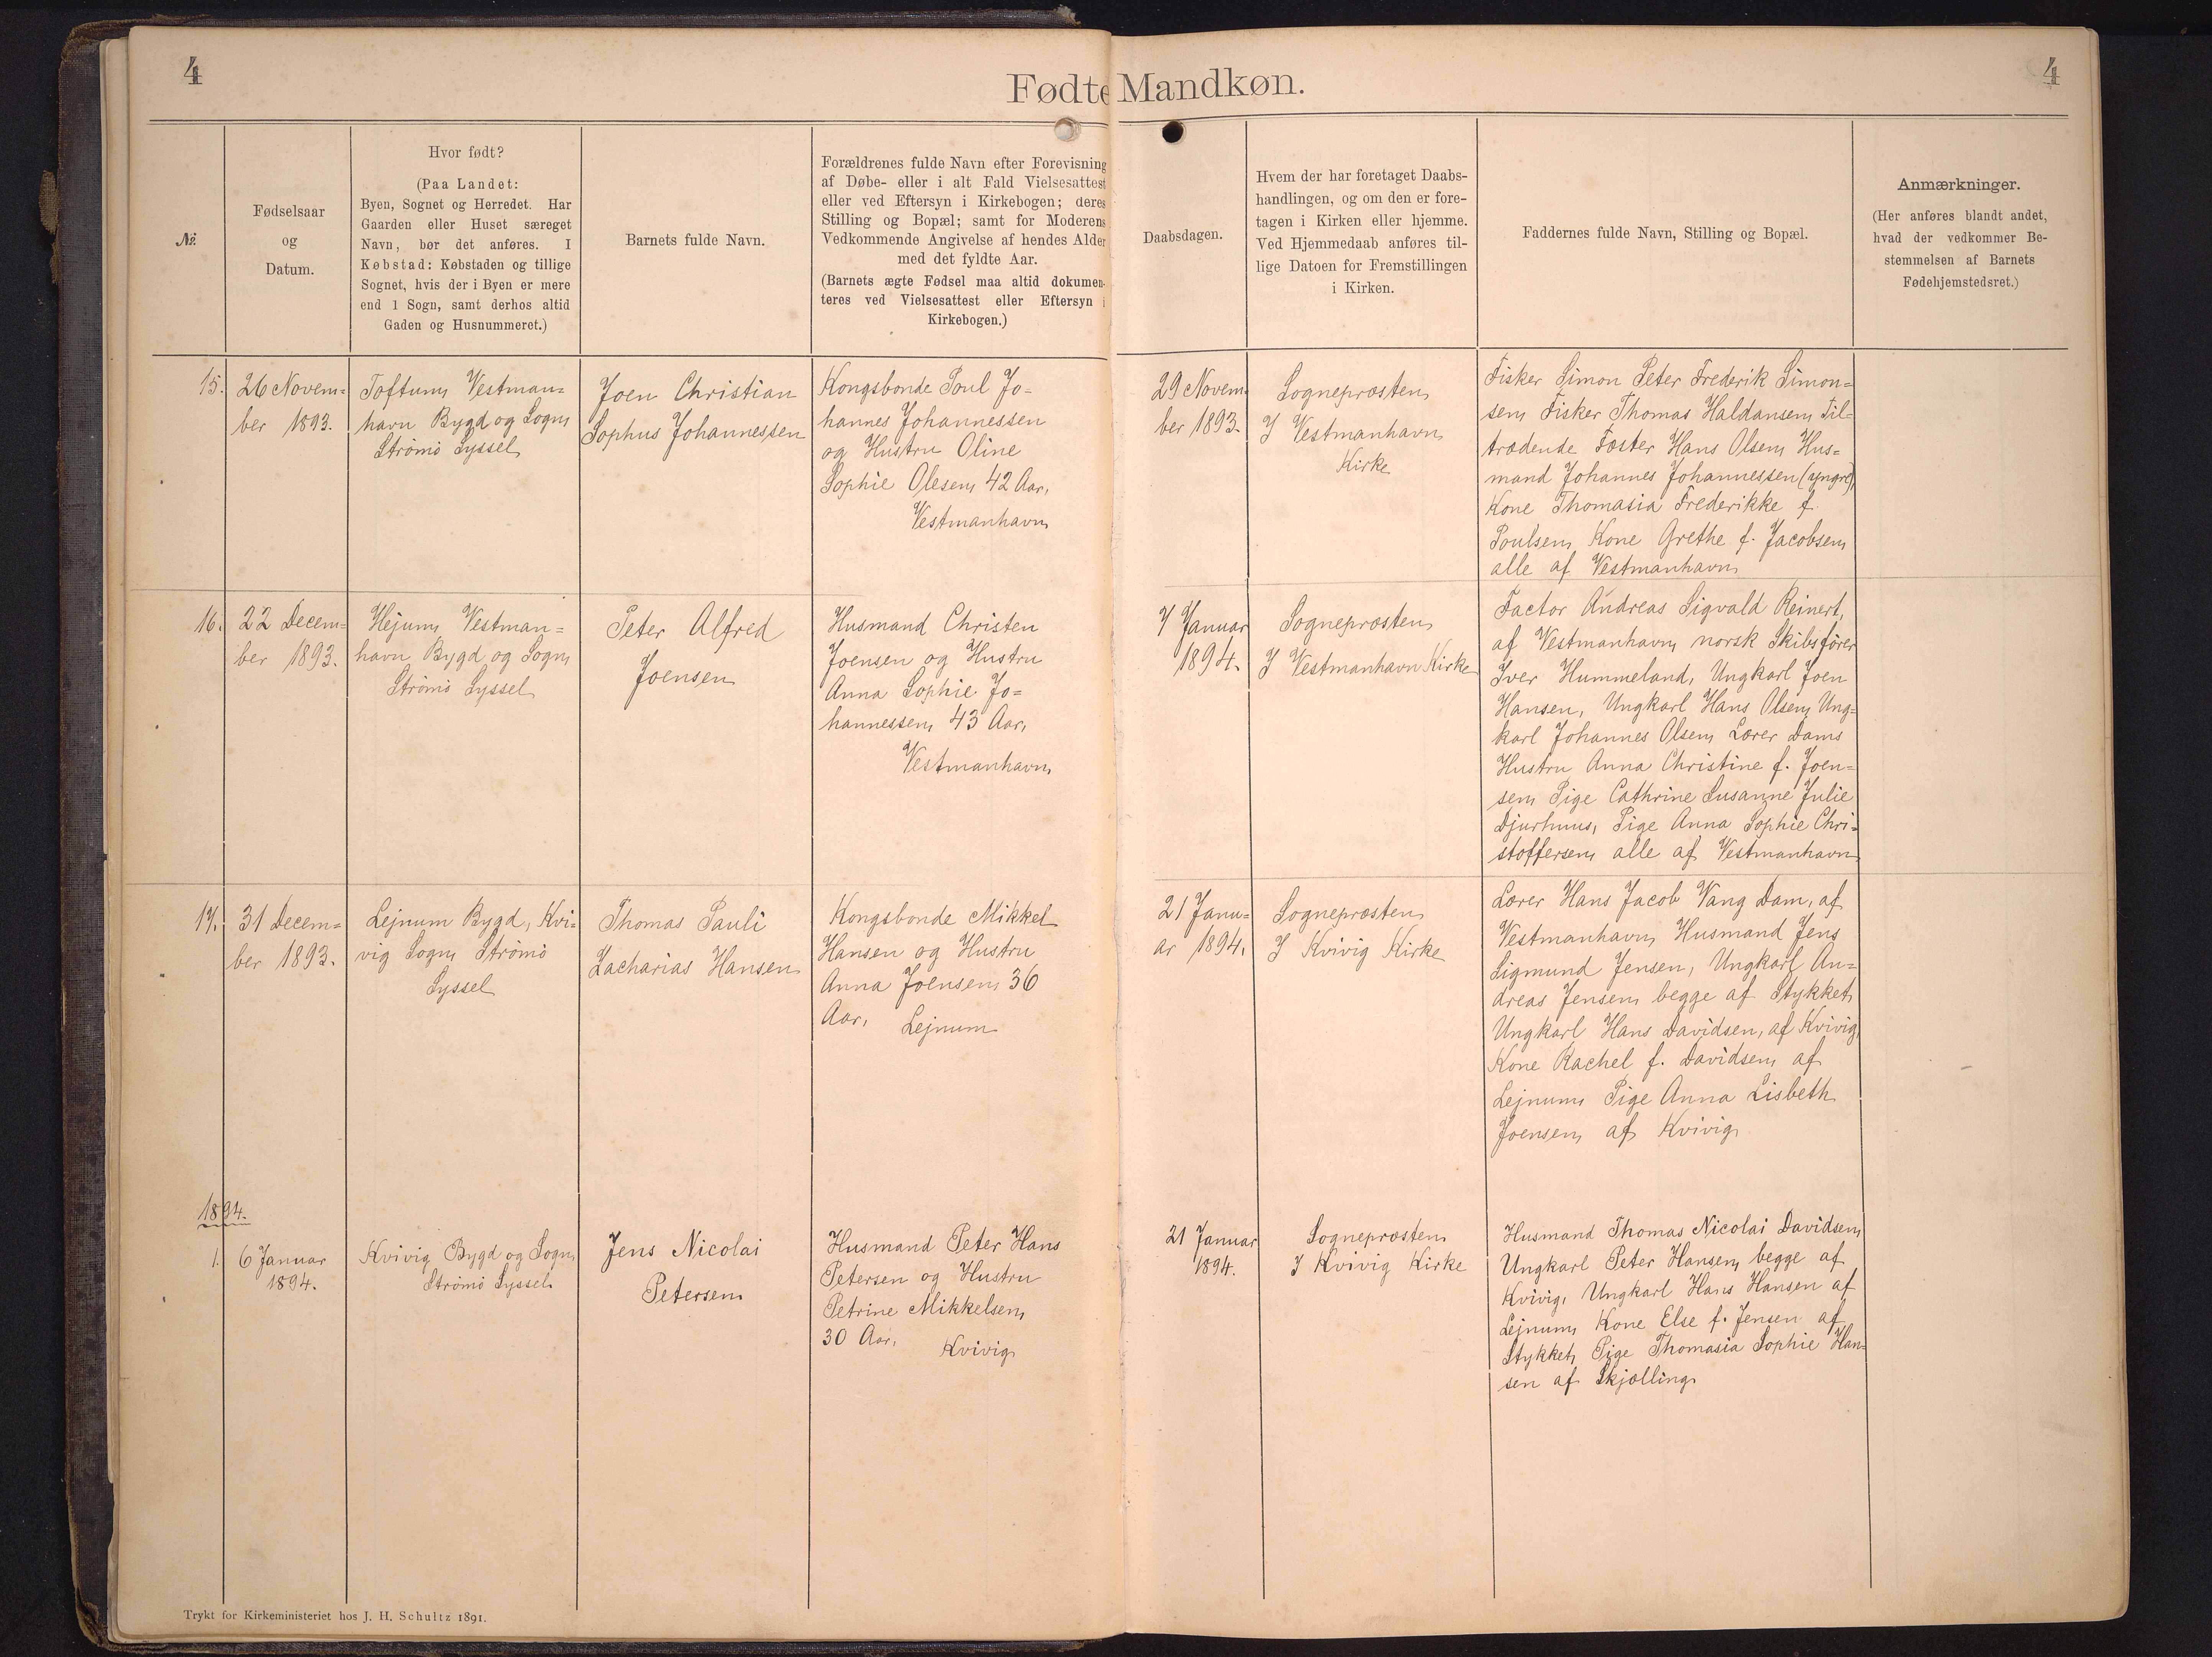 4
Fødte Mandkøn.
4
№
Fødselsaar
og
Datum.
Hvor født?
(Paa Landet:
Byen, Sognet og Herredet. Har
Gaarden eller Huset særeget
Navn, bør det anføres. I
Købstad: Købstaden og tillige
Sognet, hvis der i Byen er mere
end 1 Sogn, samt derhos altid
Gaden og Husnummeret.)
Barnets fulde Navn.
Forældrenes fulde Navn efter Forevisning
af Døbe- eller i alt Fald Vielsesattest
eller ved Eftersyn i Kirkebogen; deres
Stilling og Bopæl; samt for Moderens
Vedkommende Angivelse af hendes Alder
med det fyldte Aar.
(Barnets ægte Fødsel maa altid dokumen-
teres ved Vielsesattest eller Eftersyn i
Kirkebogen.)
Daabsdagen.
Hvem der har foretaget Daabs-
handlingen, og om den er fore-
tagen i Kirken eller hjemme.
Ved Hjemmedaab anføres til-
lige Datoen for Fremstillingen
i Kirken.
Faddernes fulde Navn, Stilling og Bopæl.
Anmærkninger.
(Her anføres blandt andet,
hvad der vedkommer Be-
stemmelsen af Barnets
Fødehjemstedsret.)
15.
26 Novem=
ber 1893.
Toftum, Vestman=
havn Bygd og Sogn,
Strømø Syssel,
Joen Christian
Sophus Johannessen
Kongsbonde Poul Jo=
hannes Johannessen
og Hustru Oline
Sophie Olesen, 42 Aar,
Vestmanhavn,
29 Novem=
ber 1893.
Sognepræsten,
I Vestmanhavn,
Kirke
Fisker Simon Peter Frederik Simon=
sen, Fisker Thomas Haldansen, Til=
trædende Fæster Hans Olsen, Hus=
mand Johannes Johannessen (yngre),
Kone Thomasia Frederikke f.
Poulsen, Kone Grethe f. Jacobsen,
alle af Vestmanhavn,
16.
22 Decem=
ber 1893.
Hejum, Vestman=
havn Bygd og Sogn,
Strømø Syssel,
Peter Alfred
Joensen
Husmand Christen
Joensen og Hustru
Anna Sophie Jo=
hannessen, 43 Aar,
Vestmanhavn,
7 Januar
1894.
Sognepræsten,
I Vestmanhavn Kirke
Factor Andreas Sigvald Reinert,
af Vestmanhavn, norsk Skibsfører
Iver Hummeland, Ungkarl Joen
Hansen, Ungkarl Hans Olsen, Ung=
karl Johannes Olsen, Lærer Dams
Hustru Anna Christine f. Joen=
sen, Pige Cathrine Susanne Julie
Djurhuus, Pige Anna Sophie Chri=
stoffersen, alle af Vestmanhavn
17.
31 Decem=
ber 1893.
Lejnum Bygd, Kvi=
vig Sogn, Strømø
Syssel
Thomas Pauli
Zacharias Hansen
Kongsbonde Mikkel
Hansen og Hustru
Anna Joensen, 36
Aar, Lejnum
21 Janu=
ar 1894.
Sognepræsten,
I Kvivig Kirke
Lærer Hans Jacob Vang Dam, af
Vestmanhavn, Husmand Jens
Sigmund Jensen, Ungkarl An=
dreas Jensen, begge af Stykket,
Ungkarl Hans Davidsen, af Kvivig,
Kone Rachel f. Davidsen, af
Lejnum, Pige Anna Lisbeth
Joensen, af Kvivig,
1894.
1.
6 Januar
1894.
Kvivig Bygd og Sogn,
Strømø Syssel,
Jens Nicolai
Petersen
Husmand Peter Hans
Petersen og Hustru
Petrine Mikkelsen,
30 Aar, Kvivig,
21 Januar
1894.
Sognepræsten,
I Kvivig Kirke
Husmand Thomas Nicolai Davidsen,
Ungkarl Peter Hansen, begge af
Kvivig, Ungkarl Hans Hansen af
Lejnum, Kone Else f. Jensen af
Stykket, Pige Thomasia Sophie Han=
sen af Skjælling,
Trykt for Kirkeministeriet hos J. H. Schultz 1891.